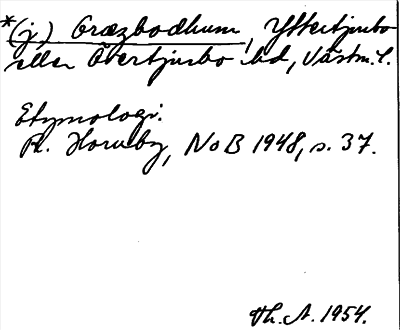 *(j) Græzbodhum, Yttertjurbo
eller Övertjurbo hd, Västm. l.
Etymologi.
R. Hornby, NoB 1948, s. 37.
Th. A. 1954.